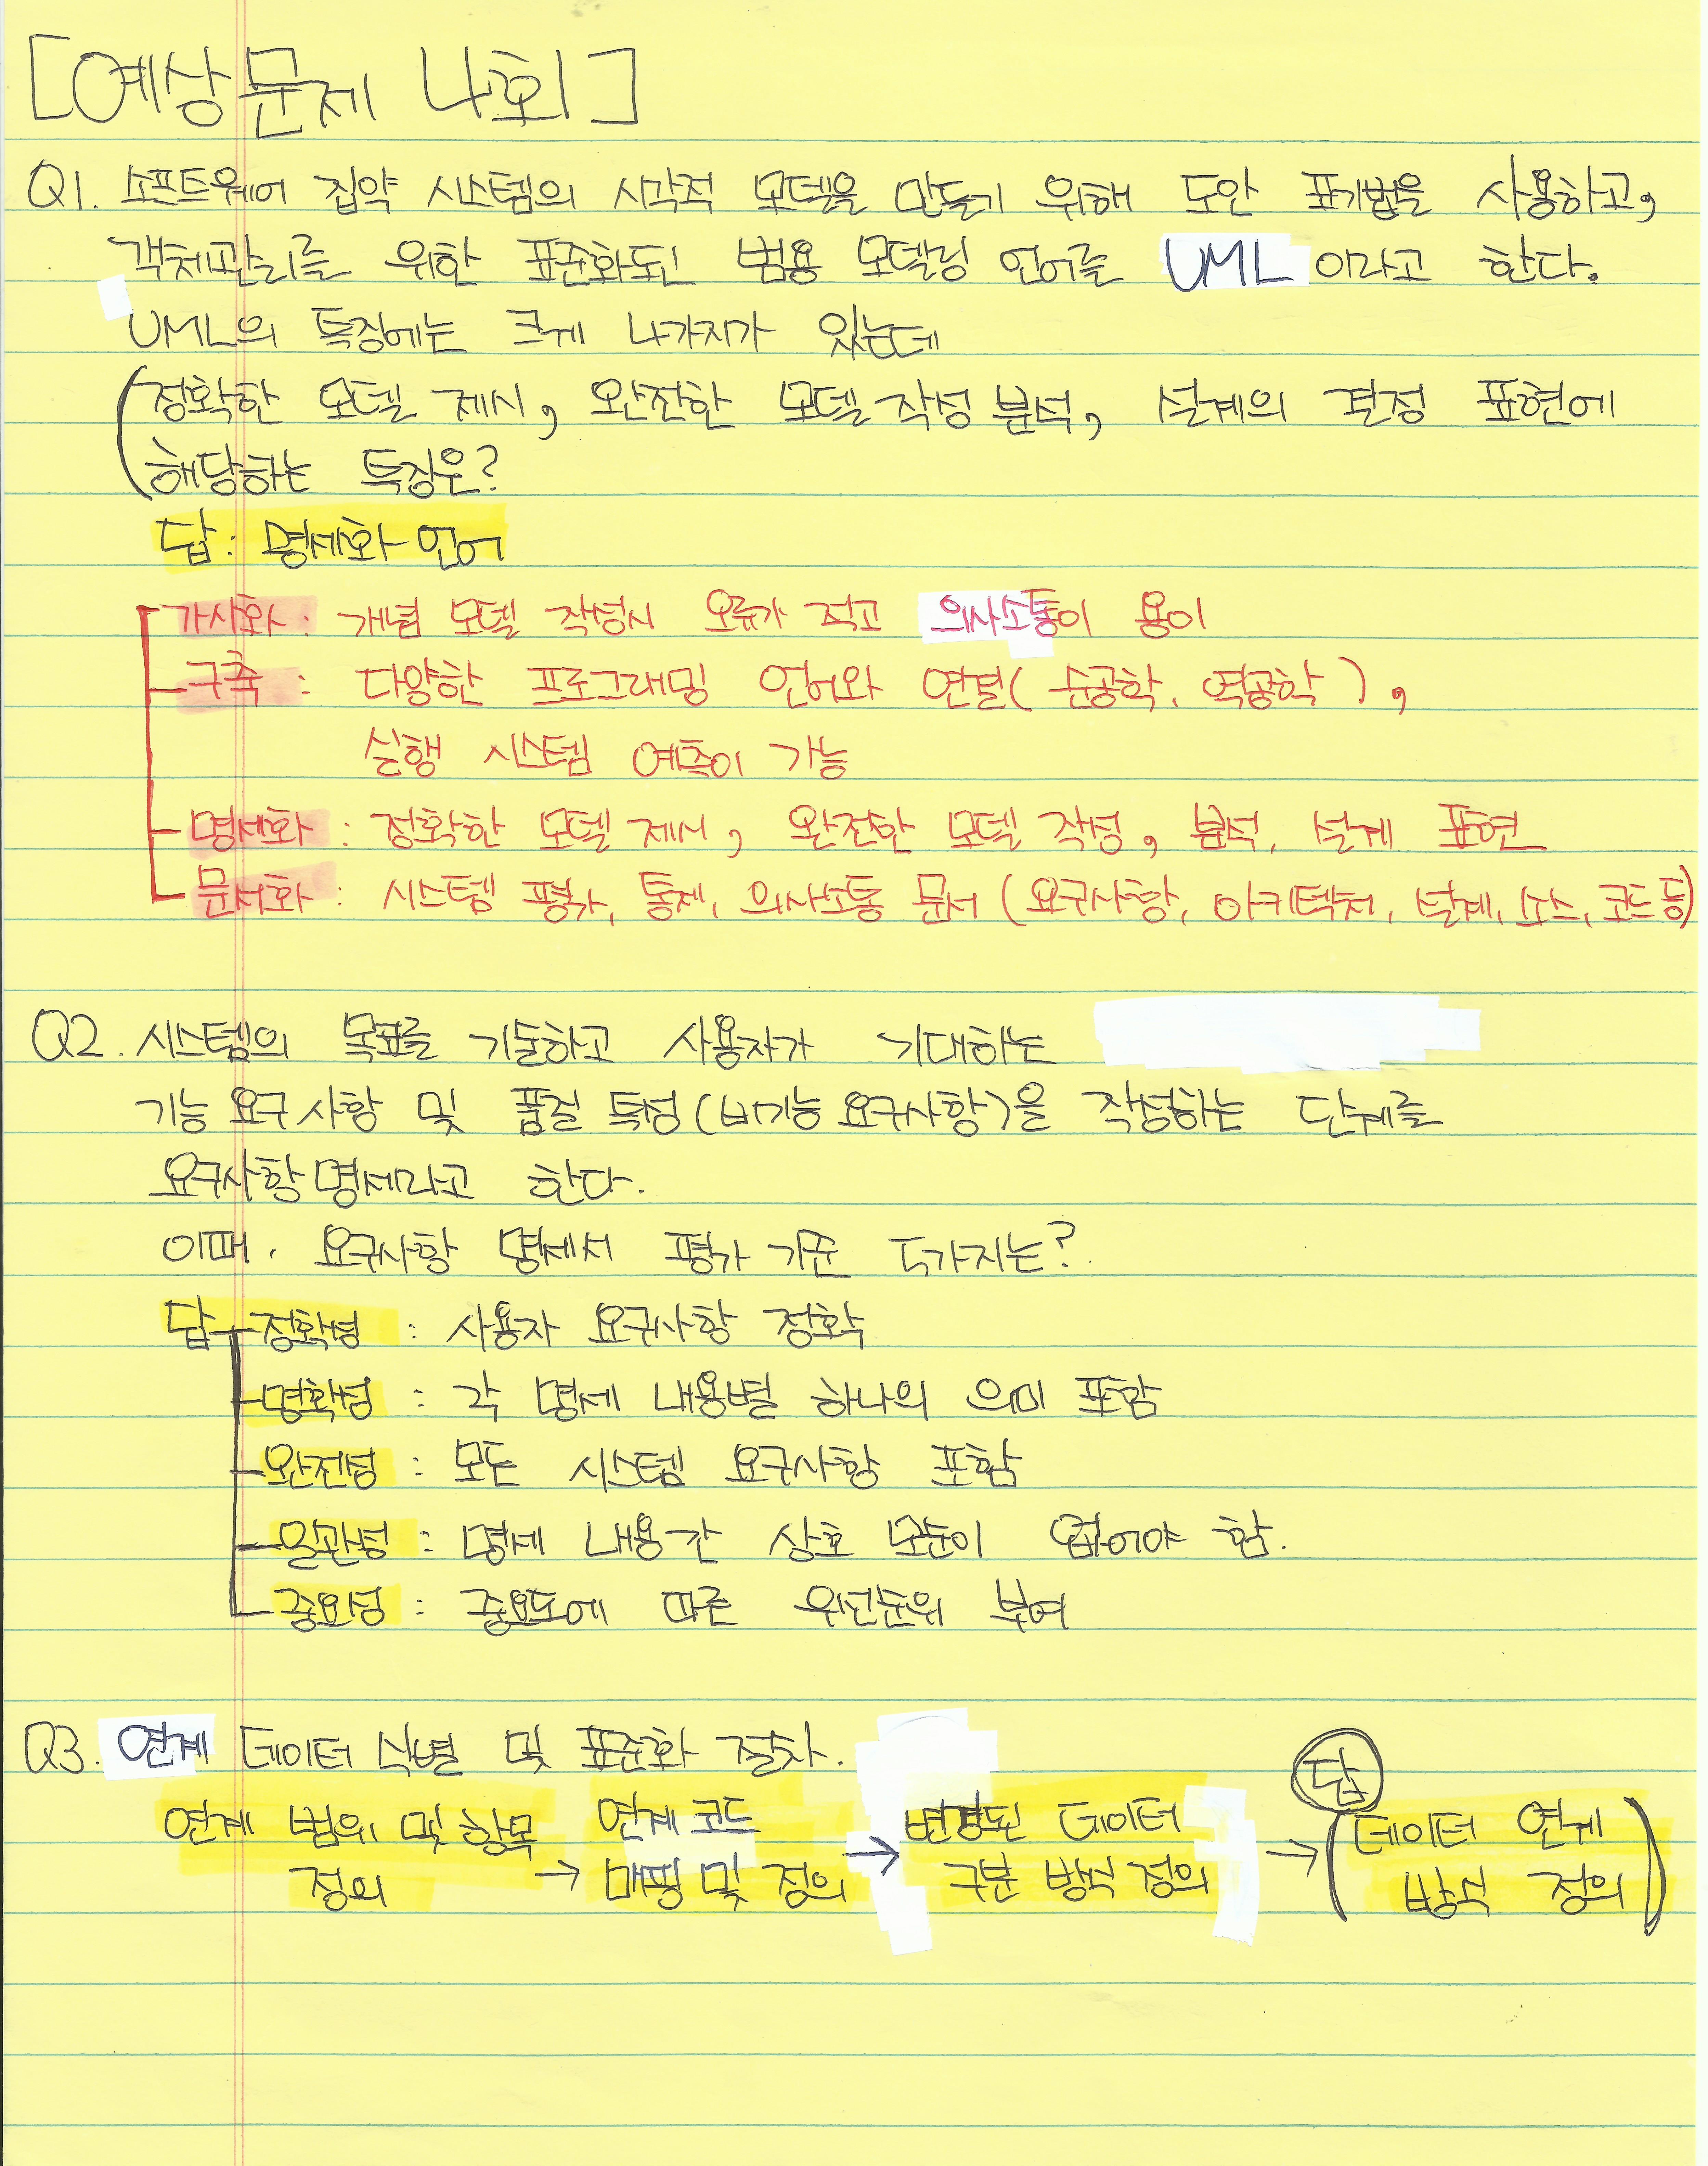 [예상문제 4회]
Q1. 소프트웨어 집약 시스템의 시각적 모델을 만들기 위해 도안 표기법을 사용하고,
객체관리를 위한 표준화된 범용 모델링 언어를 UML이라고 한다.
UML의 특징에는 크게 4가지가 있는데
정확한 모델 제시, 완전한 모델 작성 분석, 설계의 결정 표현에
해당하는 특징은?
답: 명세화 언어
가시화: 개념 모델 작성시 오류가 적고 의사소통이 용이
구축: 다양한 프로그래밍 언어와 연결(순공학, 역공학),
실행 시스템 예측이 가능
명세화: 정확한 모델 제시, 완전한 모델 작성, 분석, 설계 표현
문서화: 시스템 평가, 통제, 의사소통 문서 (요구사항, 아키텍처, 설계, 소스, 코드 등)
Q2. 시스템의 목표를 기술하고 사용자가 기대하는
기능 요구사항 및 품질 특성(비기능 요구사항)을 작성하는 단계를
요구사항 명세라고 한다.
이때, 요구사항 명세서 평가 기준 5가지는?
답 정확성 : 사용자 요구사항 정확
명확성 : 각 명세 내용별 하나의 의미 포함
완전성 : 모든 시스템 요구사항 포함
일관성 : 명세 내용 간 상호 모순이 없어야 함.
중요성 : 중요도에 따른 우선순위 부여
Q3. 연계 데이터 식별 및 표준화 절차.
답
연계 범위 및 항목 연계 코드 변경된 데이터 (데이터 연계
정의 → 매핑 및 정의 → 구분 방식 정의 → 방식 정의)